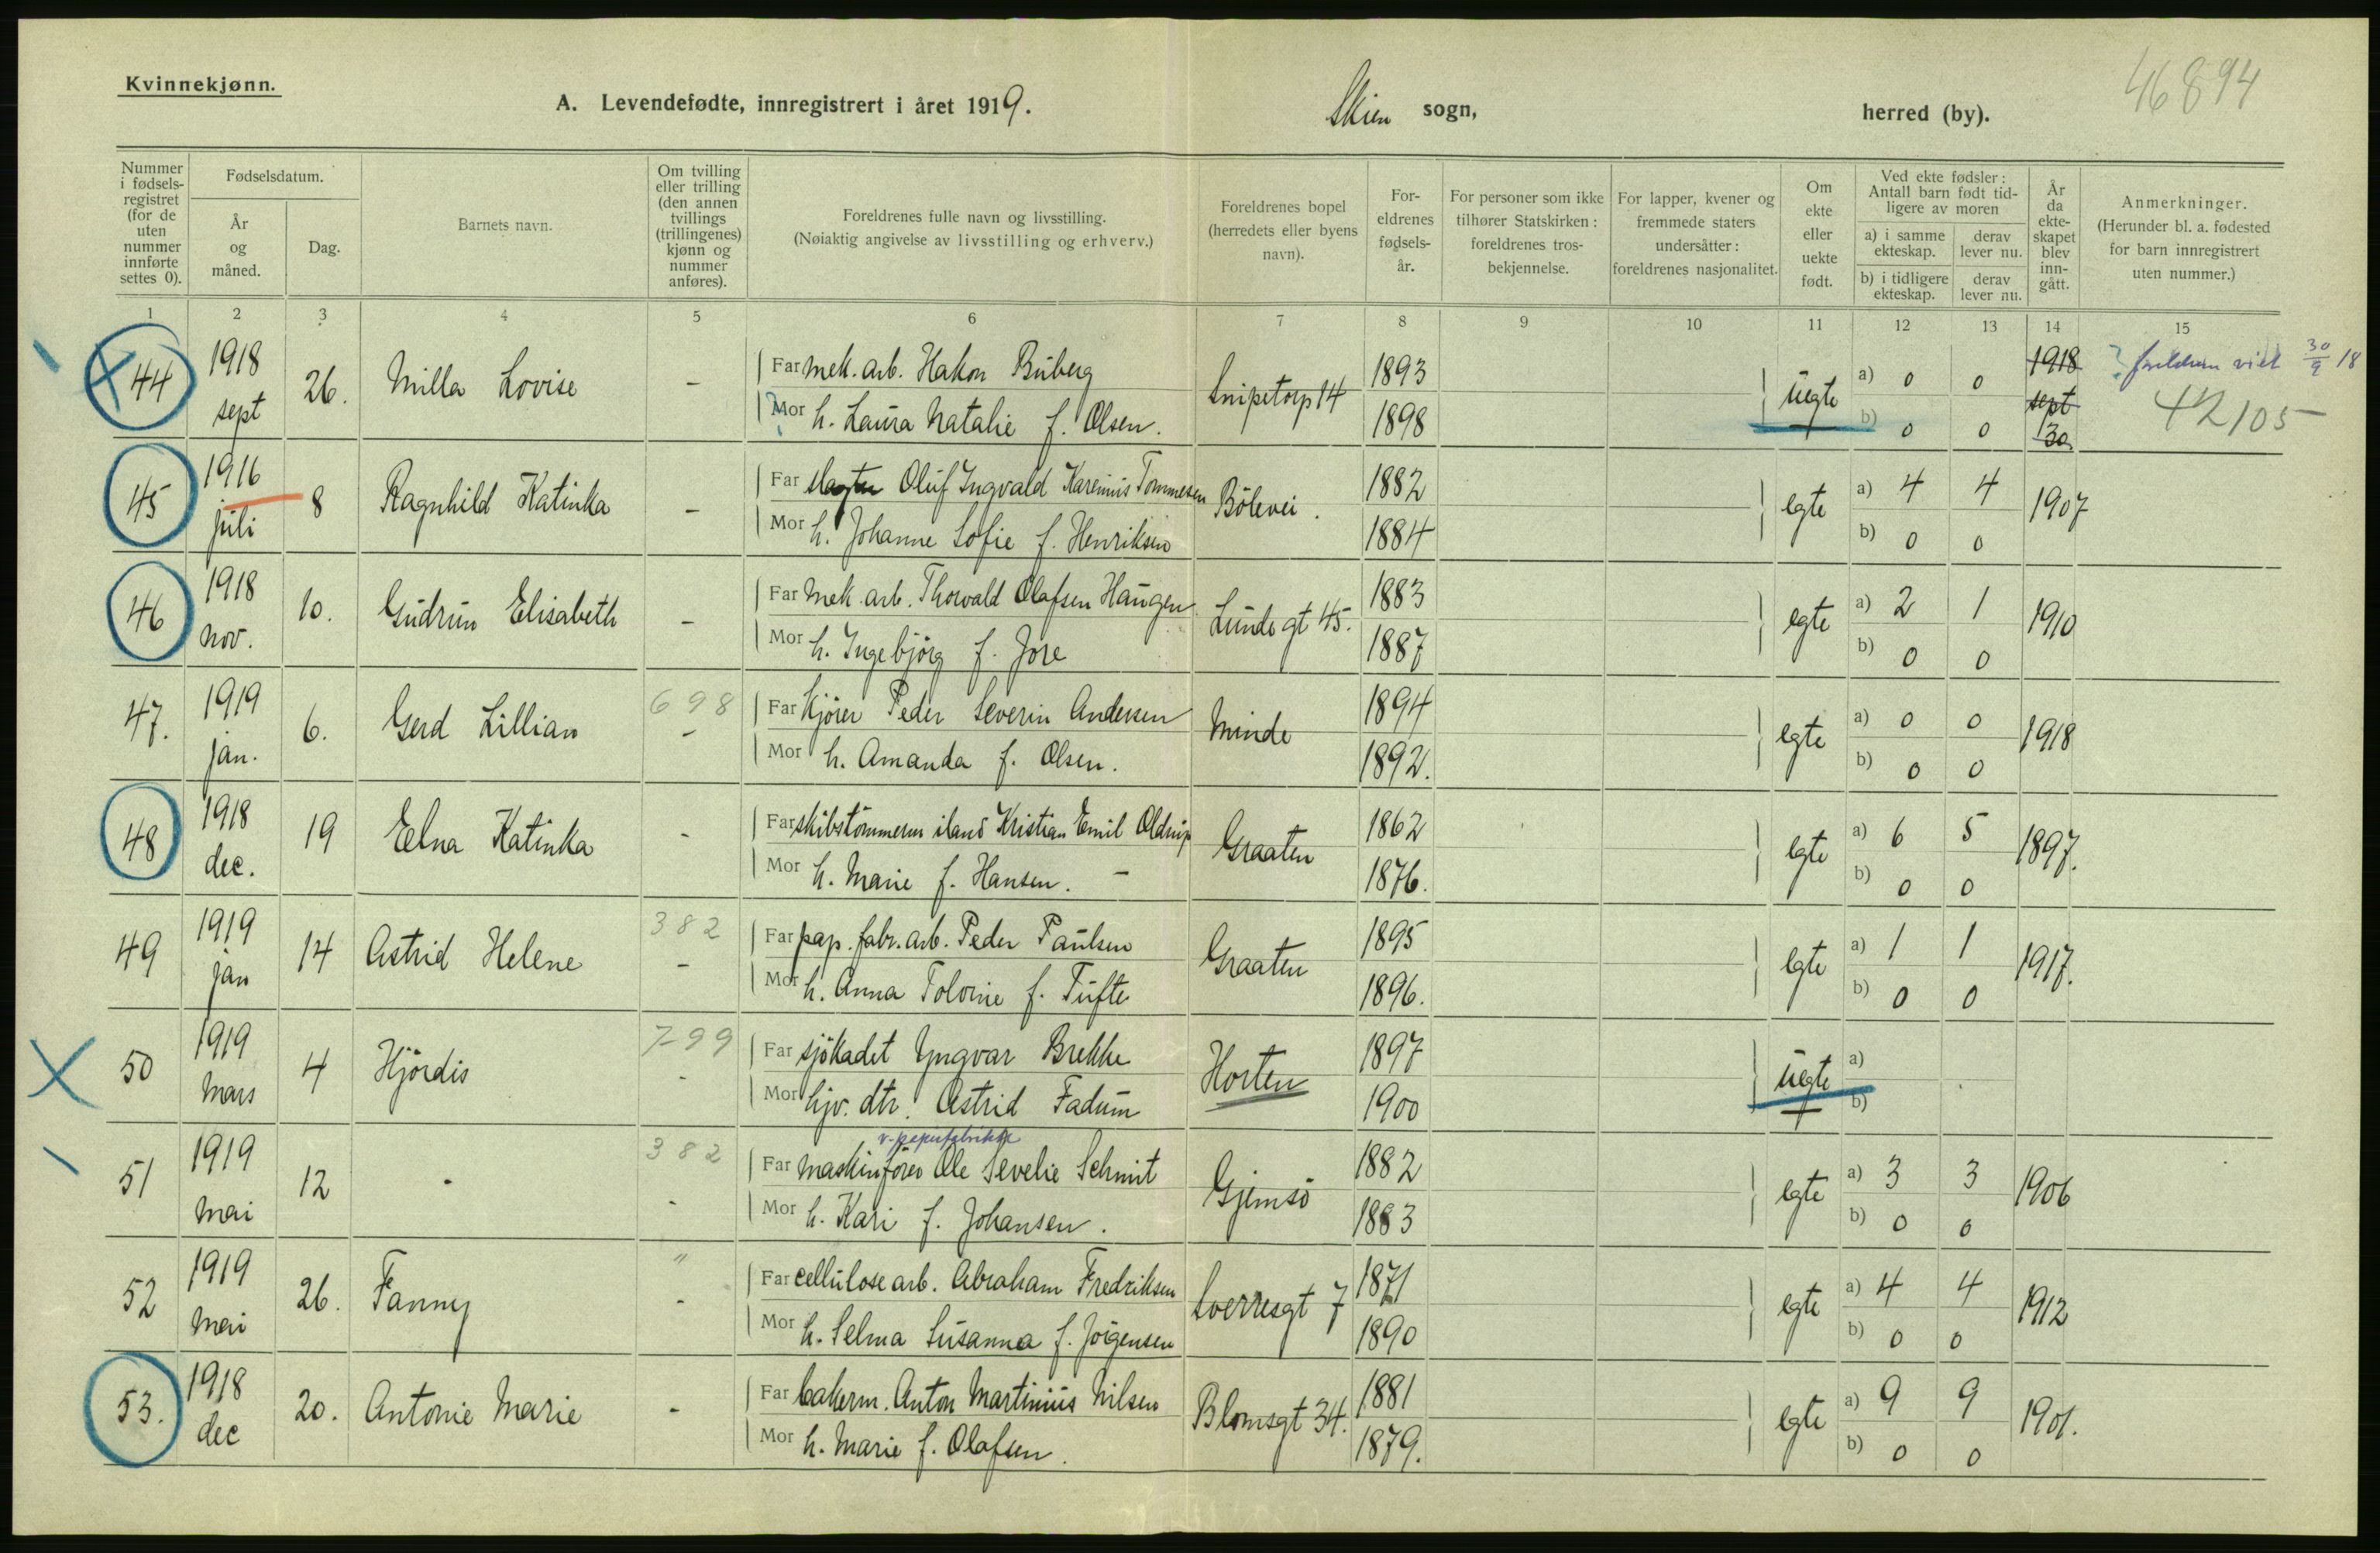 Kvinnekjønn.
46894
A. Levendefødte, innregistrert i året 1919. Skien sogn, herred (by).
Nummer i fødsels-registret (for de uten nummer innførte settes 0).
Fødselsdatum.
År og måned.
Dag.
Barnets navn.
Om tvilling eller trilling (den annen tvillings (trillingenes) kjønn og nummer anføres).
Foreldrenes fulle navn og livsstilling.
(Nøiaktig angivelse av livsstilling og erhverv.)
Foreldrenes bopel (herredets eller byens navn).
For-eldrenes fødsels-år.
For personer som ikke tilhører Statskirken: foreldrenes tros-bekjennelse.
For lapper, kvener og fremmede staters undersåtter: foreldrenes nasjonalitet.
Om ekte eller uekte født.
Ved ekte fødsler: Antall barn født tid-ligere av moren
a) i samme ekteskap. derav lever nu.
b) i tidligere ekteskap. derav lever nu.
År da ekte-skapet blev inn-gått.
Anmerkninger.
(Herunder bl. a. fødested for barn innregistrert uten nummer.)
1 2 3 4 5 6 7 8 9 10 11 12 13 14 15
44 1918 sept 26. Milla Lovise - Far mek. arb. Hakon Buberg Snipetorp 14 1893 uegte a) 0 0 1918 sept 30 ? foreldrene viet 30/9 18
Mor h. Laura Natalie f. Olsen. 1898 b) 0 0 42105
45 1916 juli 8 Ragnhild Katinka - Far slagter Oluf Ingvald Karenius Tommesen Bölevei. 1882 egte a) 4 4 1907
Mor h. Johanne Sofie f. Henriksen 1884 b) 0 0
46 1918 nov. 10. Gudrun Elisabeth - Far mek. arb. Thorvald Olafsen Haugen Lundegt 45. 1883 egte a) 2 1 1910
Mor h. Ingebjörg f. Jore 1887 b) 0 0
47. 1919 jan. 6. Gerd Lillian 698 - Far kjörer Peder Severin Andersen Minde 1894 egte a) 0 0 1918
Mor h. Amanda f. Olsen. 1892. b) 0 0
48 1918 dec. 19 Eelna Katinka - Far skibstömmerm iland Kristian Emil Oldrup Graaten 1862 egte a) 6 5 1897.
Mor h. Marie f. Hansen. - 1876. b) 0 0
49 1919 jan 14 Astrid Helene 382 - Far pap. fabr. arb. Peder Paulsen Graaten 1895 egte a) 1 1 1917.
Mor h. Anna Tolorine f. Tufte 1896. b) 0 0
50 1919 mars 4 Hjördis 799 - Far sjökadet Yngvar Brekke Horten 1897 uegte a)
Mor hjv. dtr. Astrid Fadum 1900 b)
v. papirfabrikk
51 1919 mai 12 - 382 - Far maskinförer Ole Sevelie Schmit Gjemsö 1882 egte a) 3 3 1906
Mor h. Kari f. Johansen. 1883 b) 0 0
52 1919 mai 26. Fanny " - Far cellulosearb. Abraham Fredriksen Sverresgt 7 1871 egte a) 4 4 1912
Mor h. Selma Susanna f. Jörgensen 1890 b) 0 0
53. 1918 dec 20. Antonie Marie - Far bakerm. Anton Martinius Nilsen Blomsgt 34. 1881 egte a) 9 9 1901.
Mor h. Marie f. Olafsen. 1879. b) 0 0